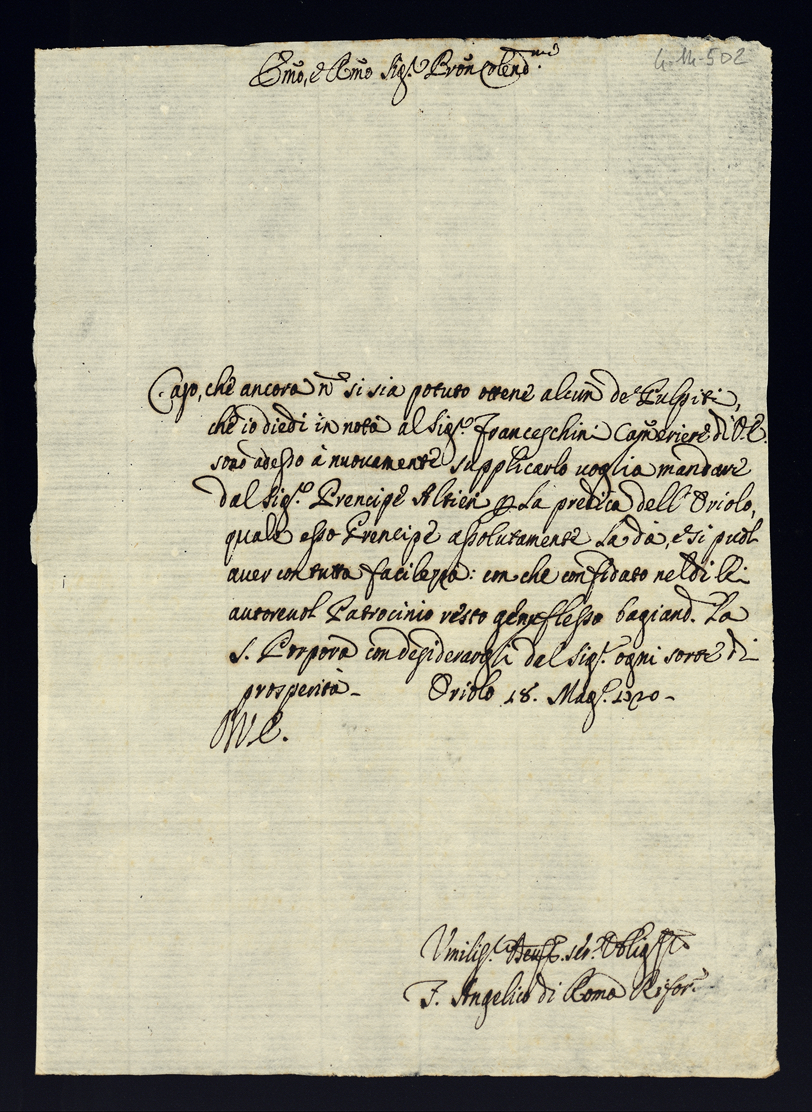 Emo, e Rmo Sig.r Pron Colend.mo
4-M-502
Caso, che ancora nō si sia potuto ottene alcun de' Pulpiti,
che io diedi in nota al Sig.r Franceschini Cam̄eriere di V.E.
sono adesso à nuovamente supplicarlo voglia mandare
dal Sig.r Prencipe Altieri ꝑ La predica dell' Oriolo,
quale esso Prencipe assolutamente La dà, e si puol
aver con tutta facilezza: con che confidato nel di lei
autorevol Patrocinio resto genuflesso bagiand. La
S. Porpora con desideravgli dal Sig.r ogni sorte di
prosperità - Oriolo 18. Mag. 1720 -
D V.E.
Vmilis.o Deuot. ser. Oblig.sto
F. Angelico di Roma Rifor.